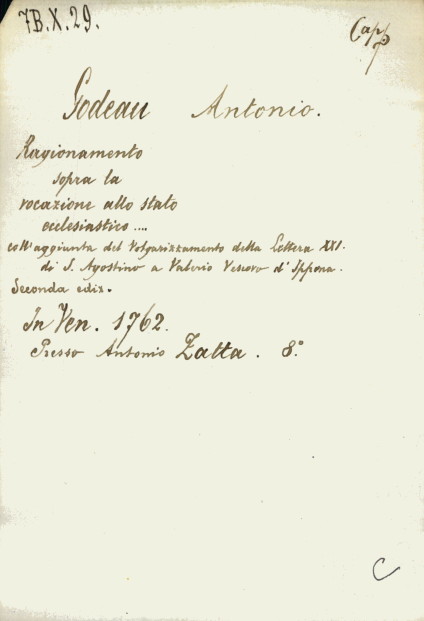 7B.X.29.
Capp
Godeau Antonio.
Ragionamento
sopra la
vocazione allo stato
ecclesiastico ....
coll'aggiunta del Volgarizzamento della Lettera XXI.
di S. Agostino a Valerio Vescovo d'Ippona.
Seconda ediz.
In Ven. 1762.
Presso Antonio Zatta. 8.°
C